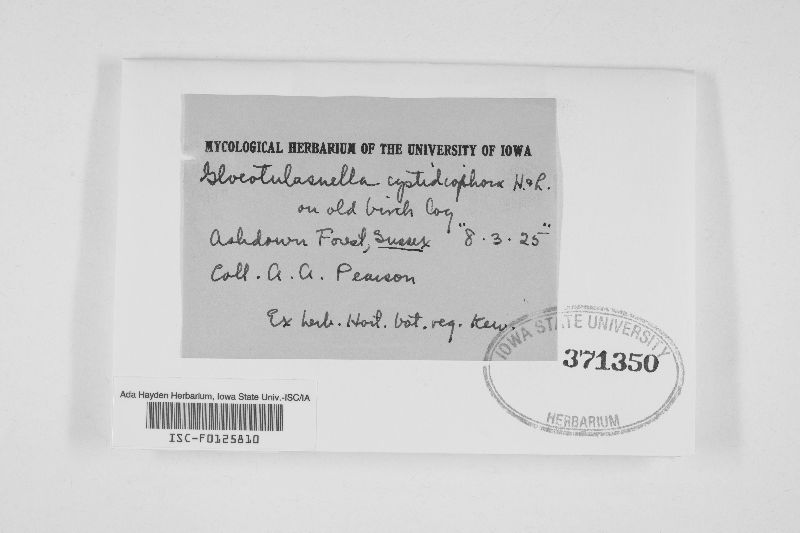 MYCOLOGICAL HERBARIUM OF THE UNIVERSITY OF IOWA
Gloeotulasnella cystidiophora H.&L.
on old birch log
Ashdown Forest, Sussex "8.3.25"
Coll. A. A. Pearson
Ex herb. Hort. bot. reg. Kew.
IOWA STATE UNIVERSITY
371350
HERBARIUM
Ada Hayden Herbarium, Iowa State Univ.-ISC/IA
ISC-F0125810